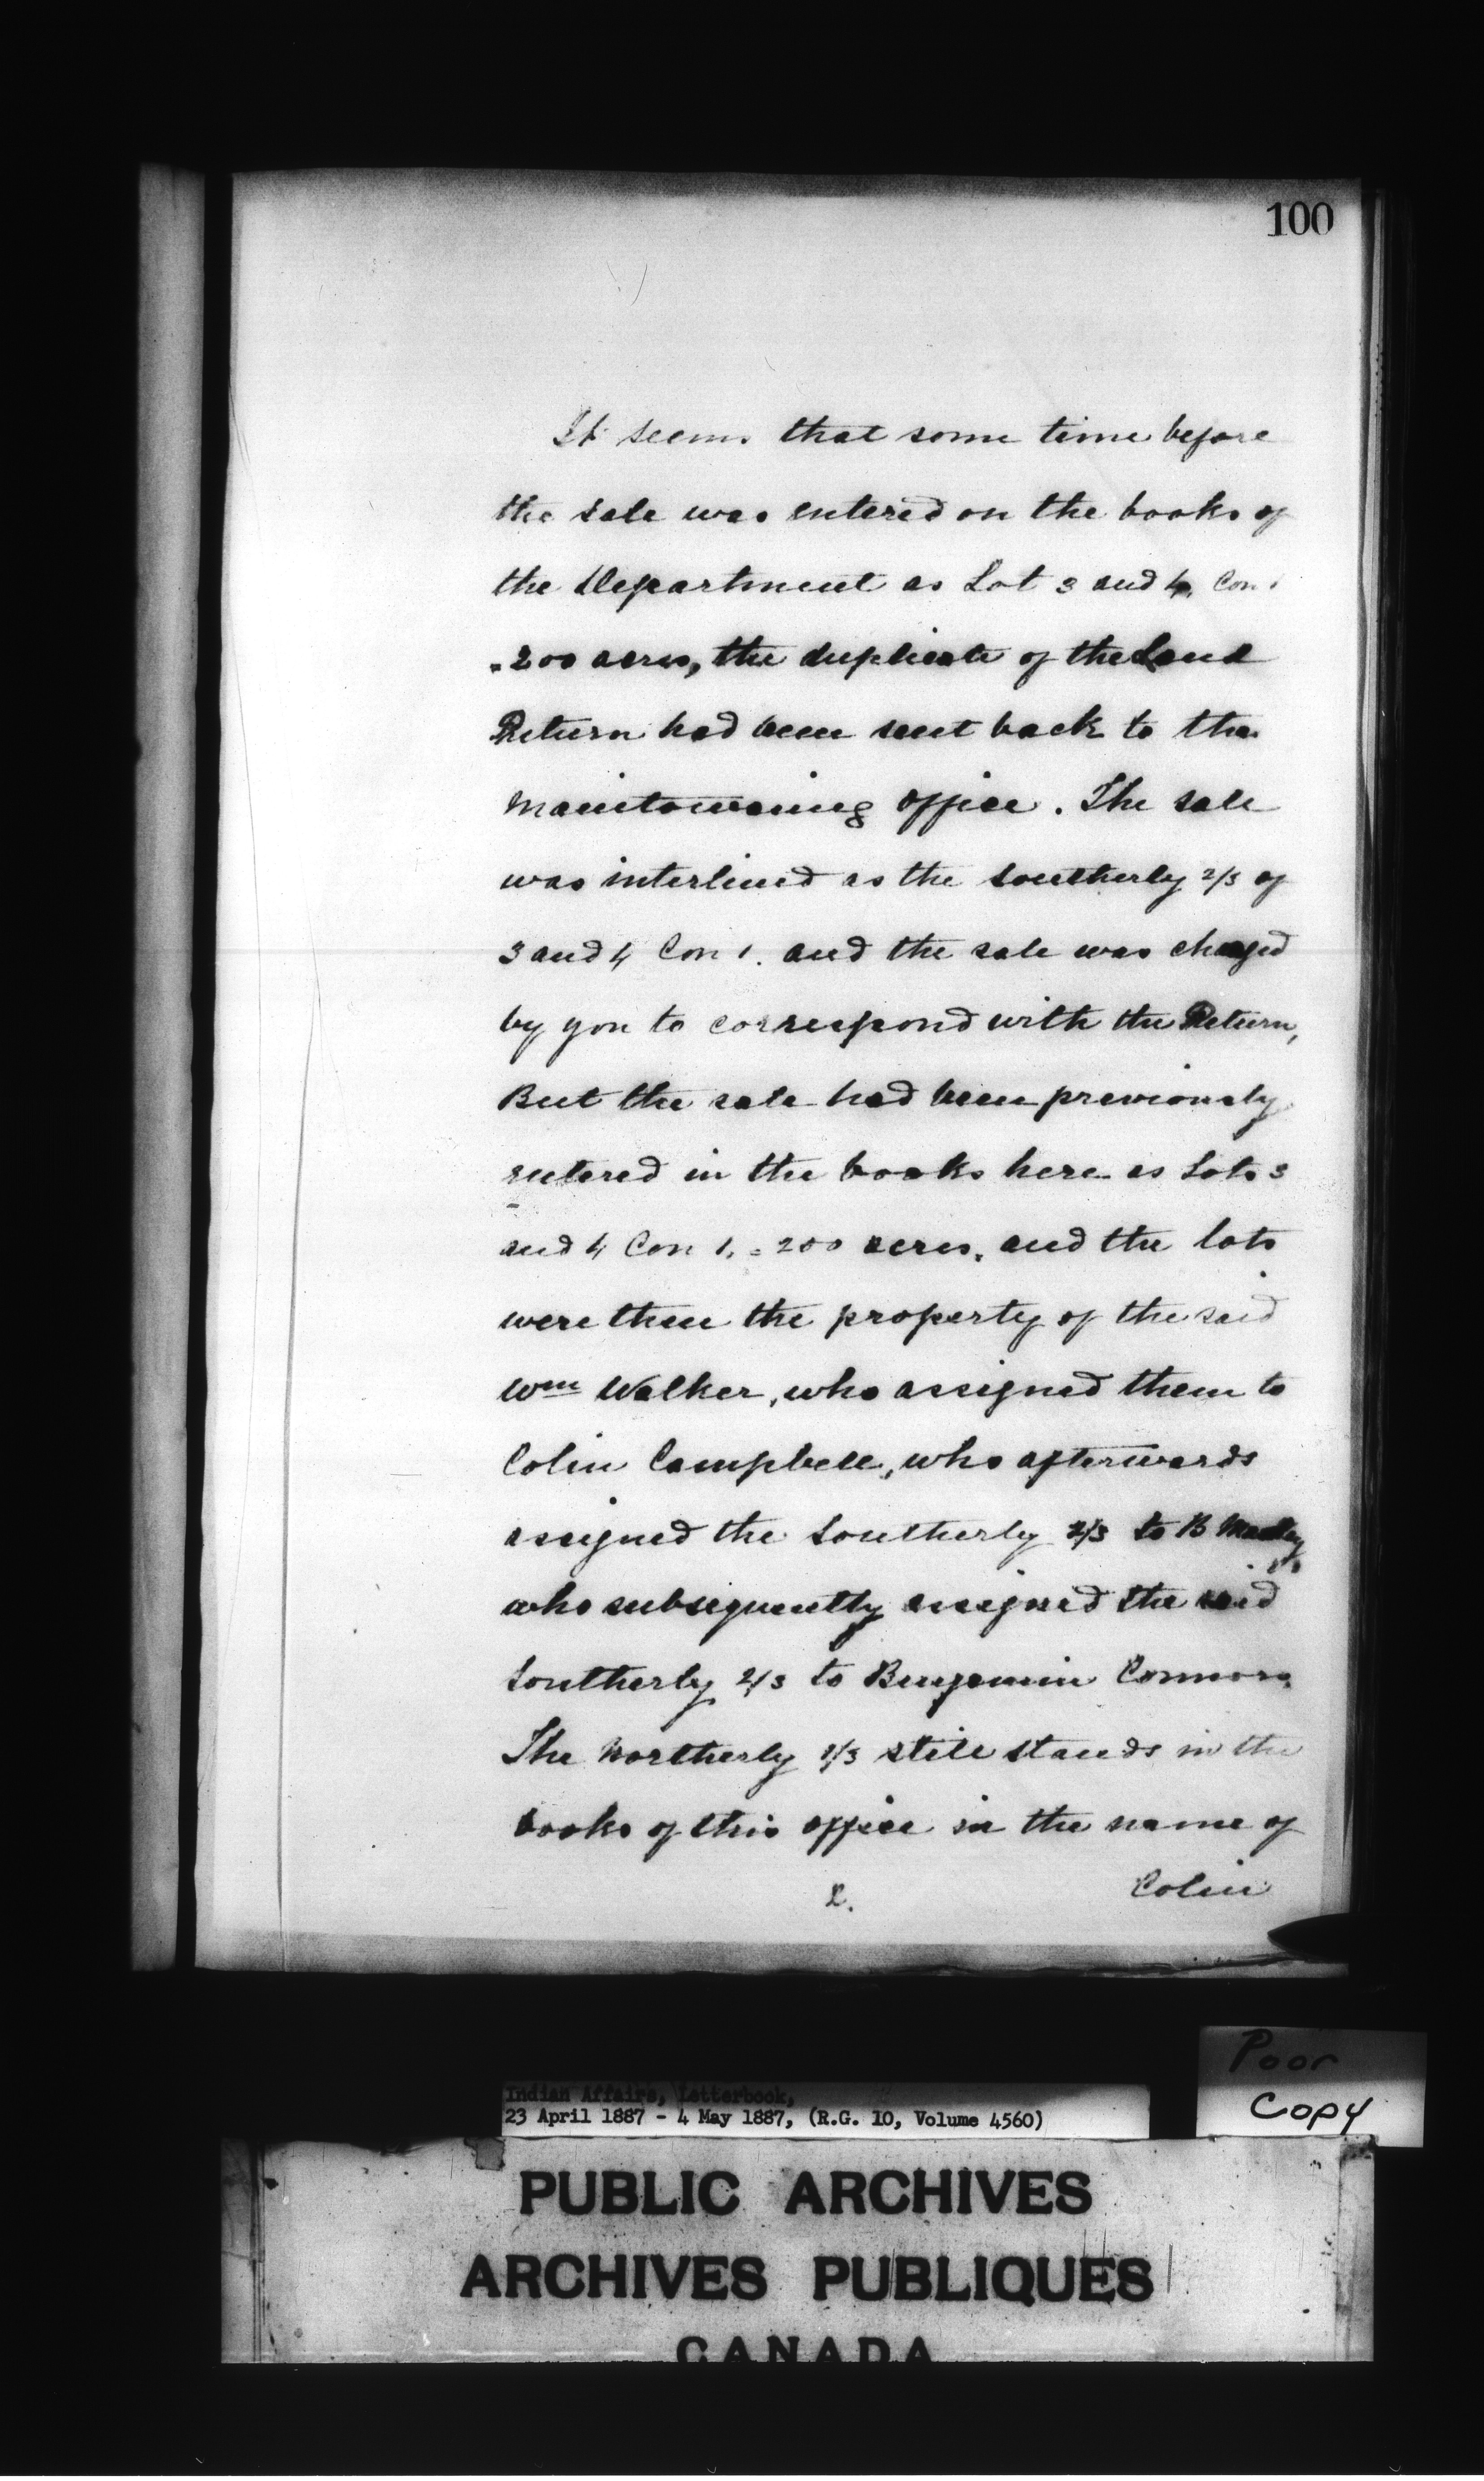 100
It seems that some time before
the sale was entered on the books of
the Department as Lot 3 and 4, Con 1
= 200 acres, the duplicate of the Land
Return had been sent back to the
Manitowaning office. The sale
was interlined as the Southerly 2/3 of
3 and 4 Con 1. and the sale was changed
by you to correspond with the Return,
But the sale had been previously
entered in the books here as Lots 3
and 4 Con 1, = 200 acres, and the lots
were then the property of the said
Wm Walker, who assigned them to
Colin Campbell, who afterwards
assigned the Southerly 2/3 to B
who subsequently assigned the said
Southerly 2/3 to Benjamin Connors.
The Northerly 1/3 still stands in the
books of this office in the name of
2. Colin
Poor
Copy
Indian Affairs, Letterbook,
23 April 1887 - 4 May 1887, (R.G. 10, Volume 4560)
PUBLIC ARCHIVES
ARCHIVES PUBLIQUES
CANADA